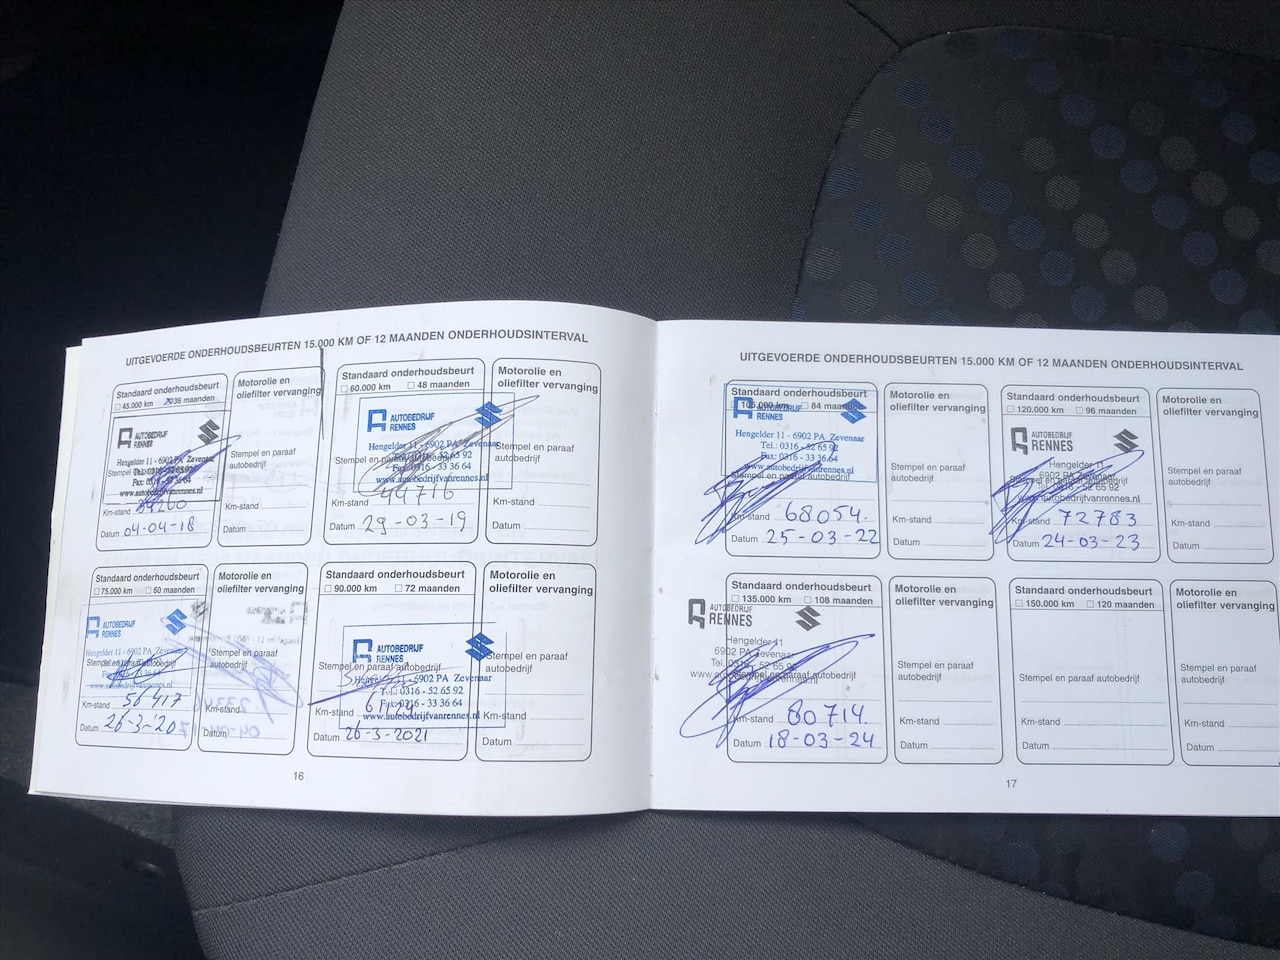 UITGEVOERDE ONDERHOUDSBEURTEN 15.000 KM OF 12 MAANDEN ONDERHOUDSINTERVAL
Standaard onderhoudsbeurt
45.000 km 36 maanden
AUTOBEDRIJF
RENNES
Hengelder 11 - 6902 PA Zevenaar
Tel.: 0316 - 52 65 92
Fax: 0316 - 33 36 64
www.autobedrijfvanrennes.nl
Km-stand
Datum 04-04-18
Motorolie en
oliefilter vervanging
Stempel en paraaf
autobedrijf
Km-stand
Datum
Standaard onderhoudsbeurt
60.000 km 48 maanden
AUTOBEDRIJF
RENNES
Hengelder 11 - 6902 PA Zevenaar
Stempel en paraaf autobedrijf
Tel.: 0316 - 52 65 92
Fax: 0316 - 33 36 64
www.autobedrijfvanrennes.nl
44716
Km-stand
Datum 29-03-19
Motorolie en
oliefilter vervanging
Stempel en paraaf
autobedrijf
Km-stand
Datum
Standaard onderhoudsbeurt
75.000 km 60 maanden
AUTOBEDRIJF
RENNES
Hengelder 11 - 6902 PA Zevenaar
Stempel en paraaf autobedrijf
www.autobedrijfvanrennes.nl
Km-stand 56417
Datum 26-3-'20
Motorolie en
oliefilter vervanging
Stempel en paraaf
autobedrijf
Km-stand
Datum
Standaard onderhoudsbeurt
90.000 km 72 maanden
AUTOBEDRIJF
RENNES
Stempel en paraaf autobedrijf
Hengelder 11 - 6902 PA Zevenaar
Tel.: 0316 - 52 65 92
Fax: 0316 - 33 36 64
www.autobedrijfvanrennes.nl
Km-stand
Datum 26-3-2021
Motorolie en
oliefilter vervanging
Stempel en paraaf
autobedrijf
Km-stand
Datum
16
UITGEVOERDE ONDERHOUDSBEURTEN 15.000 KM OF 12 MAANDEN ONDERHOUDSINTERVAL
Standaard onderhoudsbeurt
105.000 km 84 maanden
AUTOBEDRIJF
RENNES
Hengelder 11 - 6902 PA Zevenaar
Tel.: 0316 - 52 65 92
Fax: 0316 - 33 36 64
www.autobedrijfvanrennes.nl
Stempel en paraaf autobedrijf
Km-stand 68054.
Datum 25-03-22
Motorolie en
oliefilter vervanging
Stempel en paraaf
autobedrijf
Km-stand
Datum
Standaard onderhoudsbeurt
120.000 km 96 maanden
AUTOBEDRIJF
RENNES
Hengelder 11
6902 PA Zevenaar
www.autobedrijfvanrennes.nl
Km-stand 72783
Datum 24-03-23
Motorolie en
oliefilter vervanging
Stempel en paraaf
autobedrijf
Km-stand
Datum
Standaard onderhoudsbeurt
135.000 km 108 maanden
AUTOBEDRIJF
RENNES
Hengelder 11
6902 PA Zevenaar
Tel. 0316 - 52 65 92
Km-stand 80714.
Datum 18-03-24
Motorolie en
oliefilter vervanging
Stempel en paraaf
autobedrijf
Km-stand
Datum
Standaard onderhoudsbeurt
150.000 km 120 maanden
Stempel en paraaf autobedrijf
Km-stand
Datum
Motorolie en
oliefilter vervanging
Stempel en paraaf
autobedrijf
Km-stand
Datum
17